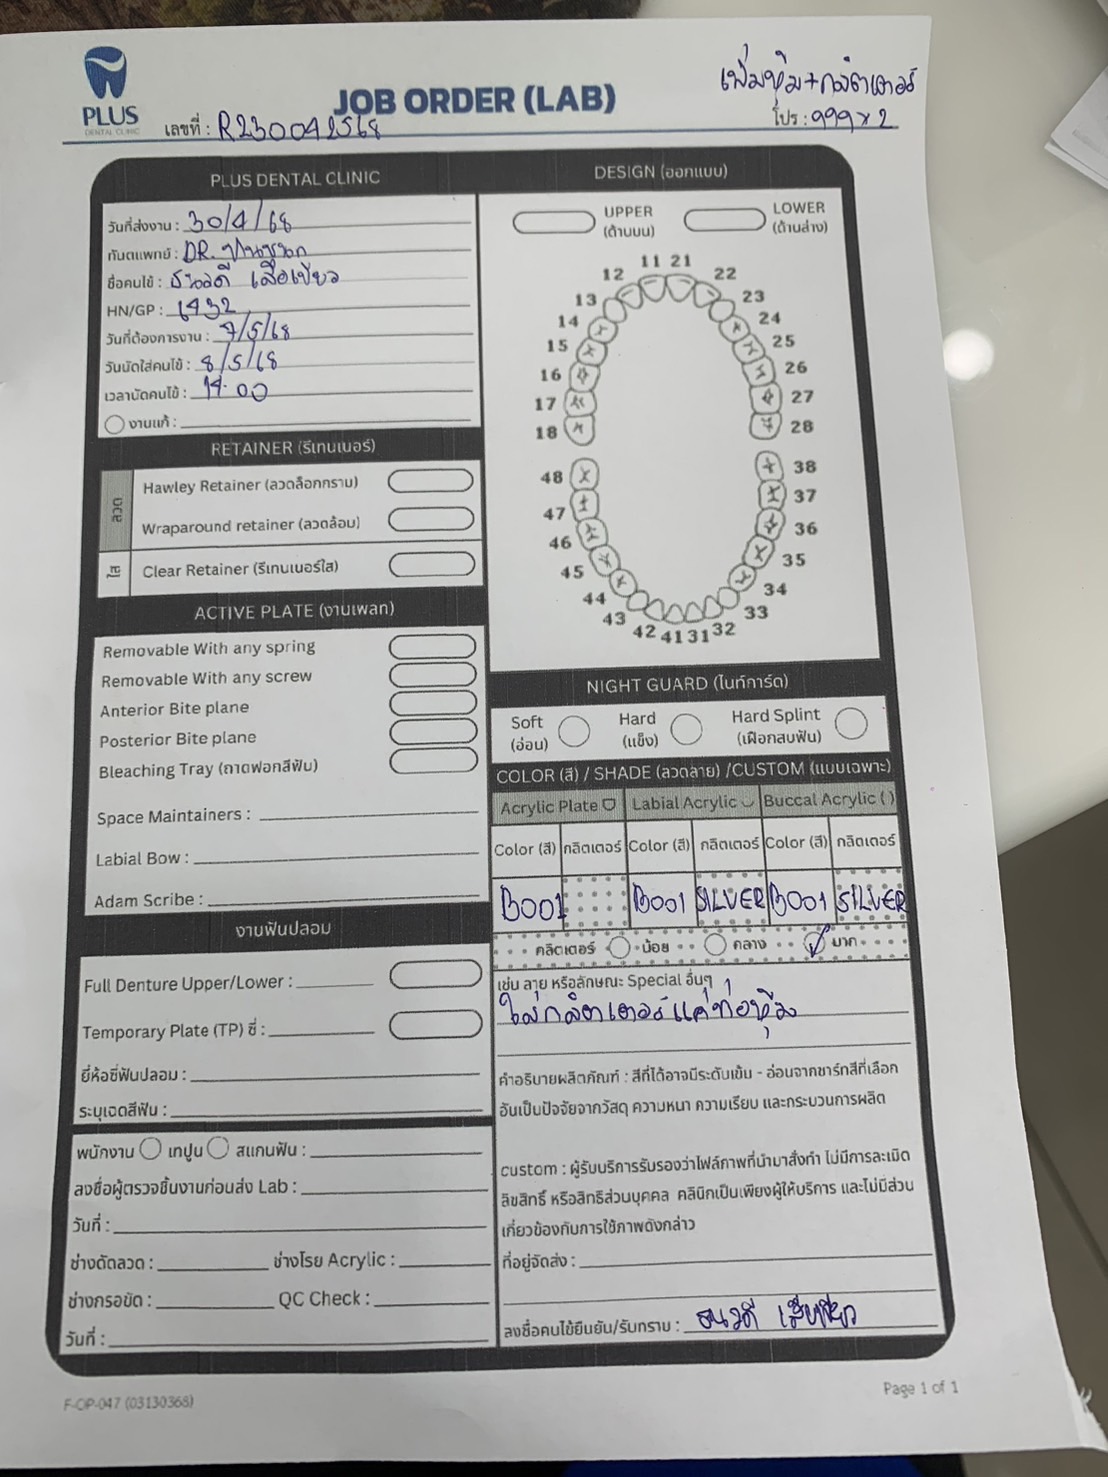 PLUS
DENTAL CLINIC
JOB ORDER (LAB)
เพิ่มหุ้ม+กลิตเตอร์
เลขที่ : R230042568
โปร : 999x2
PLUS DENTAL CLINIC
วันที่ส่งงาน : 30/4/68
ทันตแพทย์ : DR.
ชื่อคนไข้ : ธนวดี เสือเขียว
HN/GP : 1432
วันที่ต้องการงาน : 7/5/68
วันนัดใส่คนไข้ : 8/5/68
เวลานัดคนไข้ : 14.00
งานแก้ :
RETAINER (รีเทนเนอร์)
ลวด
Hawley Retainer (ลวดล็อกกราม)
Wraparound retainer (ลวดล้อม)
ใส
Clear Retainer (รีเทนเนอร์ใส)
ACTIVE PLATE (งานเพลท)
Removable With any spring
Removable With any screw
Anterior Bite plane
Posterior Bite plane
Bleaching Tray (ถาดฟอกสีฟัน)
Space Maintainers :
Labial Bow :
Adam Scribe :
งานฟันปลอม
Full Denture Upper/Lower :
Temporary Plate (TP) ซี่ :
ยี่ห้อซี่ฟันปลอม :
ระบุเฉดสีฟัน :
พนักงาน เทปูน สแกนฟัน :
ลงชื่อผู้ตรวจชิ้นงานก่อนส่ง Lab :
วันที่ :
ช่างดัดลวด : ช่างโรย Acrylic :
ช่างกรอขัด : QC Check :
วันที่ :
DESIGN (ออกแบบ)
UPPER (ด้านบน)
LOWER (ด้านล่าง)
11 21
12 22
13 23
14 24
15 25
16 26
17 27
18 28
48 38
47 37
46 36
45 35
44 34
43 33
42 41 31 32
NIGHT GUARD (ไนท์การ์ด)
Soft (อ่อน)
Hard (แข็ง)
Hard Splint (เฝือกสบฟัน)
COLOR (สี) / SHADE (ลวดลาย) /CUSTOM (แบบเฉพาะ)
Acrylic Plate Labial Acrylic Buccal Acrylic ( )
Color (สี) กลิตเตอร์ Color (สี) กลิตเตอร์ Color (สี) กลิตเตอร์
B001 B001 SILVER B001 SILVER
กลิตเตอร์ น้อย กลาง มาก
เช่น ลาย หรือลักษณะ Special อื่นๆ
ใส่กลิตเตอร์แค่ท่อหุ้ม
คำอธิบายผลิตภัณฑ์ : สีที่ได้อาจมีระดับเข้ม - อ่อนจากชาร์ทสีที่เลือก
อันเป็นปัจจัยจากวัสดุ ความหนา ความเรียบ และกระบวนการผลิต
custom : ผู้รับบริการรับรองว่าไฟล์ภาพที่นำมาสั่งทำ ไม่มีการละเมิด
ลิขสิทธิ์ หรือสิทธิส่วนบุคคล คลินิกเป็นเพียงผู้ให้บริการ และไม่มีส่วน
เกี่ยวข้องกับการใช้ภาพดังกล่าว
ที่อยู่จัดส่ง :
ลงชื่อคนไข้ยืนยัน/รับทราบ : ธนวดี เสือเขียว
F-OP-047 (03130368)
Page 1 of 1